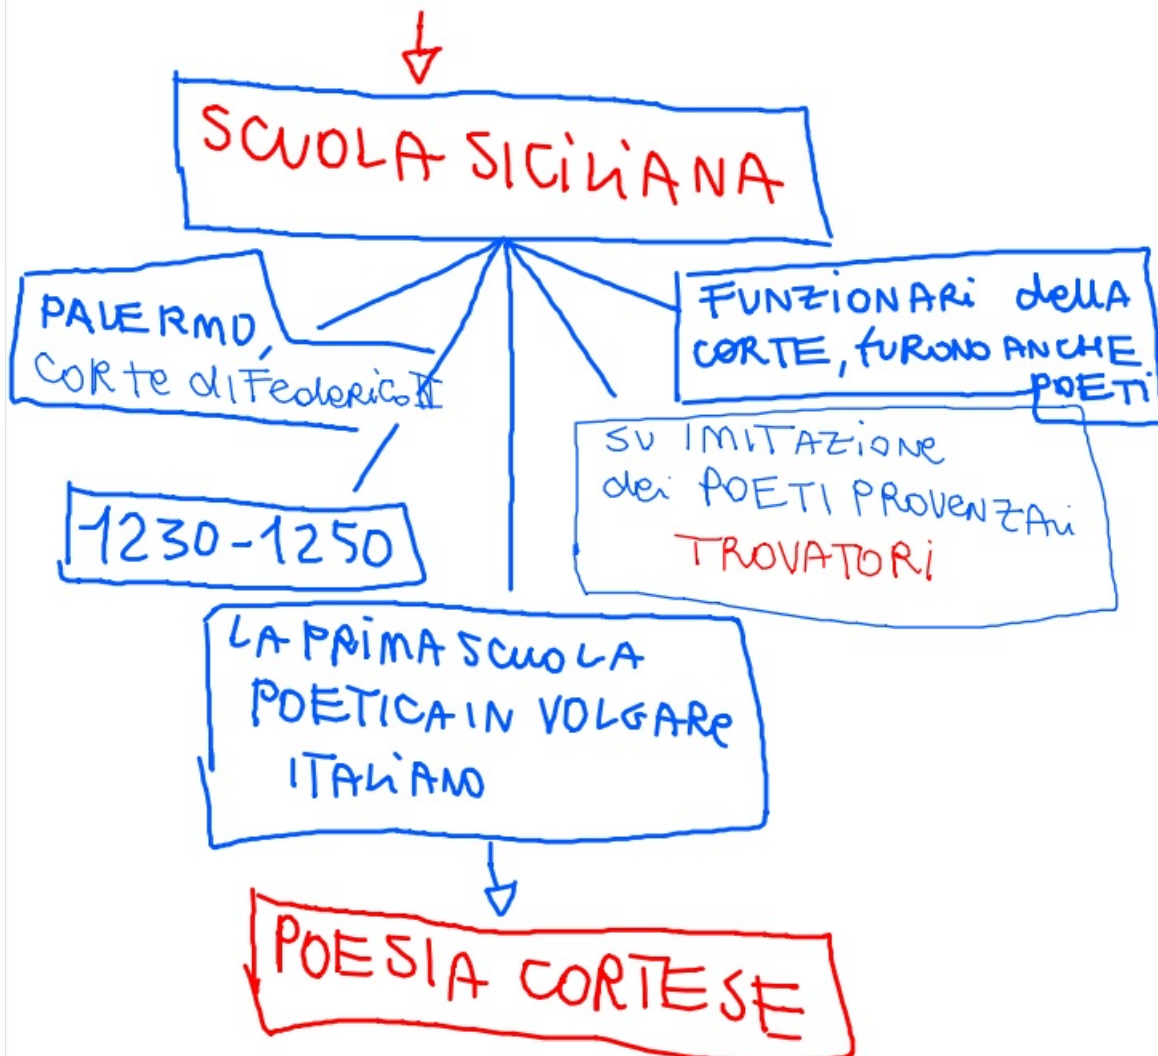 SCUOLA SICILIANA
PALERMO,
CORTE di Federico II
FUNZIONARI della
CORTE, FURONO ANCHE
POETI
SU IMITAZIONE
dei POETI PROVENZALI
TROVATORI
1230-1250
LA PRIMA SCUOLA
POETICA IN VOLGARE
ITALIANO
POESIA CORTESE